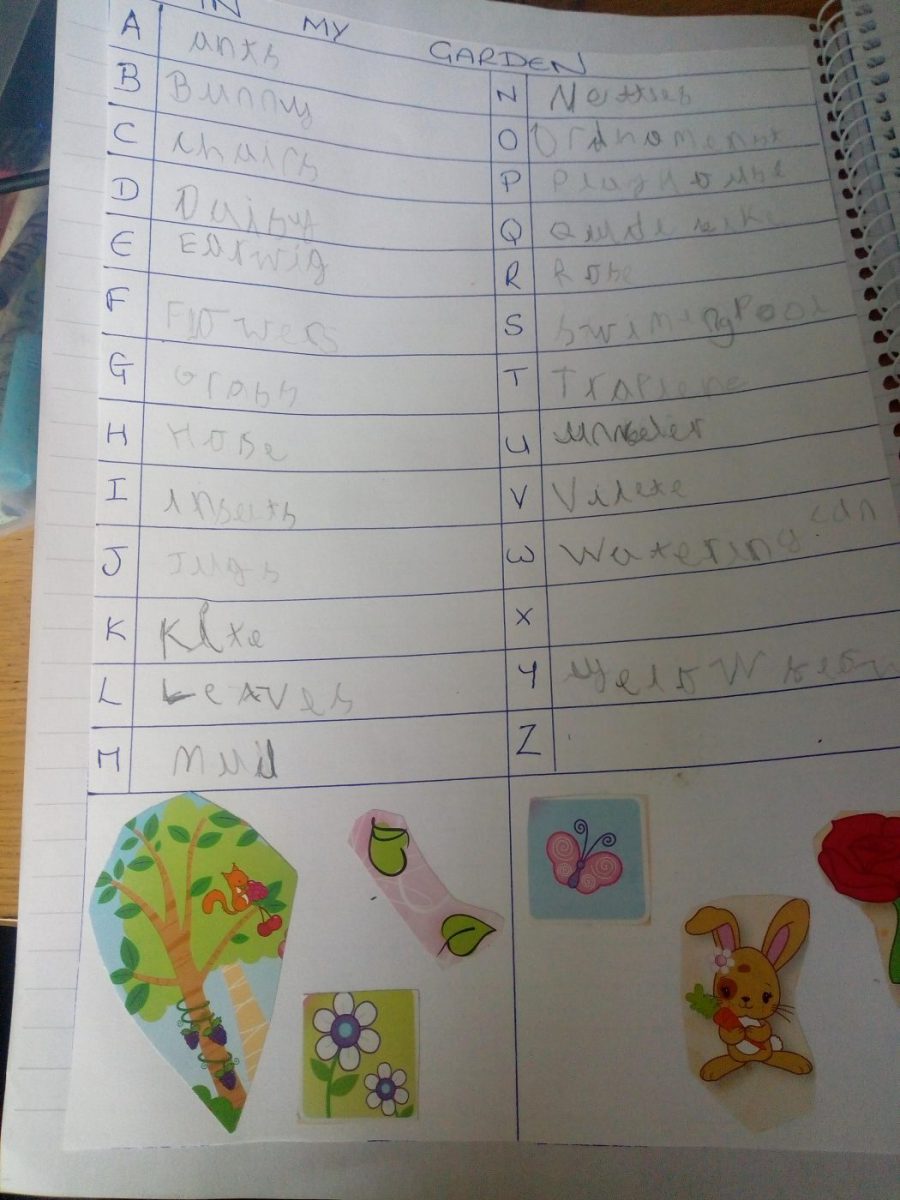 IN MY GARDEN
A ants
B Bunny
C chairs
D Daisys
E Earwig
F Flowers
G Grass
H Hose
I insects
J Jugs
K Kite
L Leaves
M Mud
N Nettles
O Ordnaments
P Playhouse
Q
R Rose
S Swimingpool
T
U
V
W Watering can
X
Y
Z